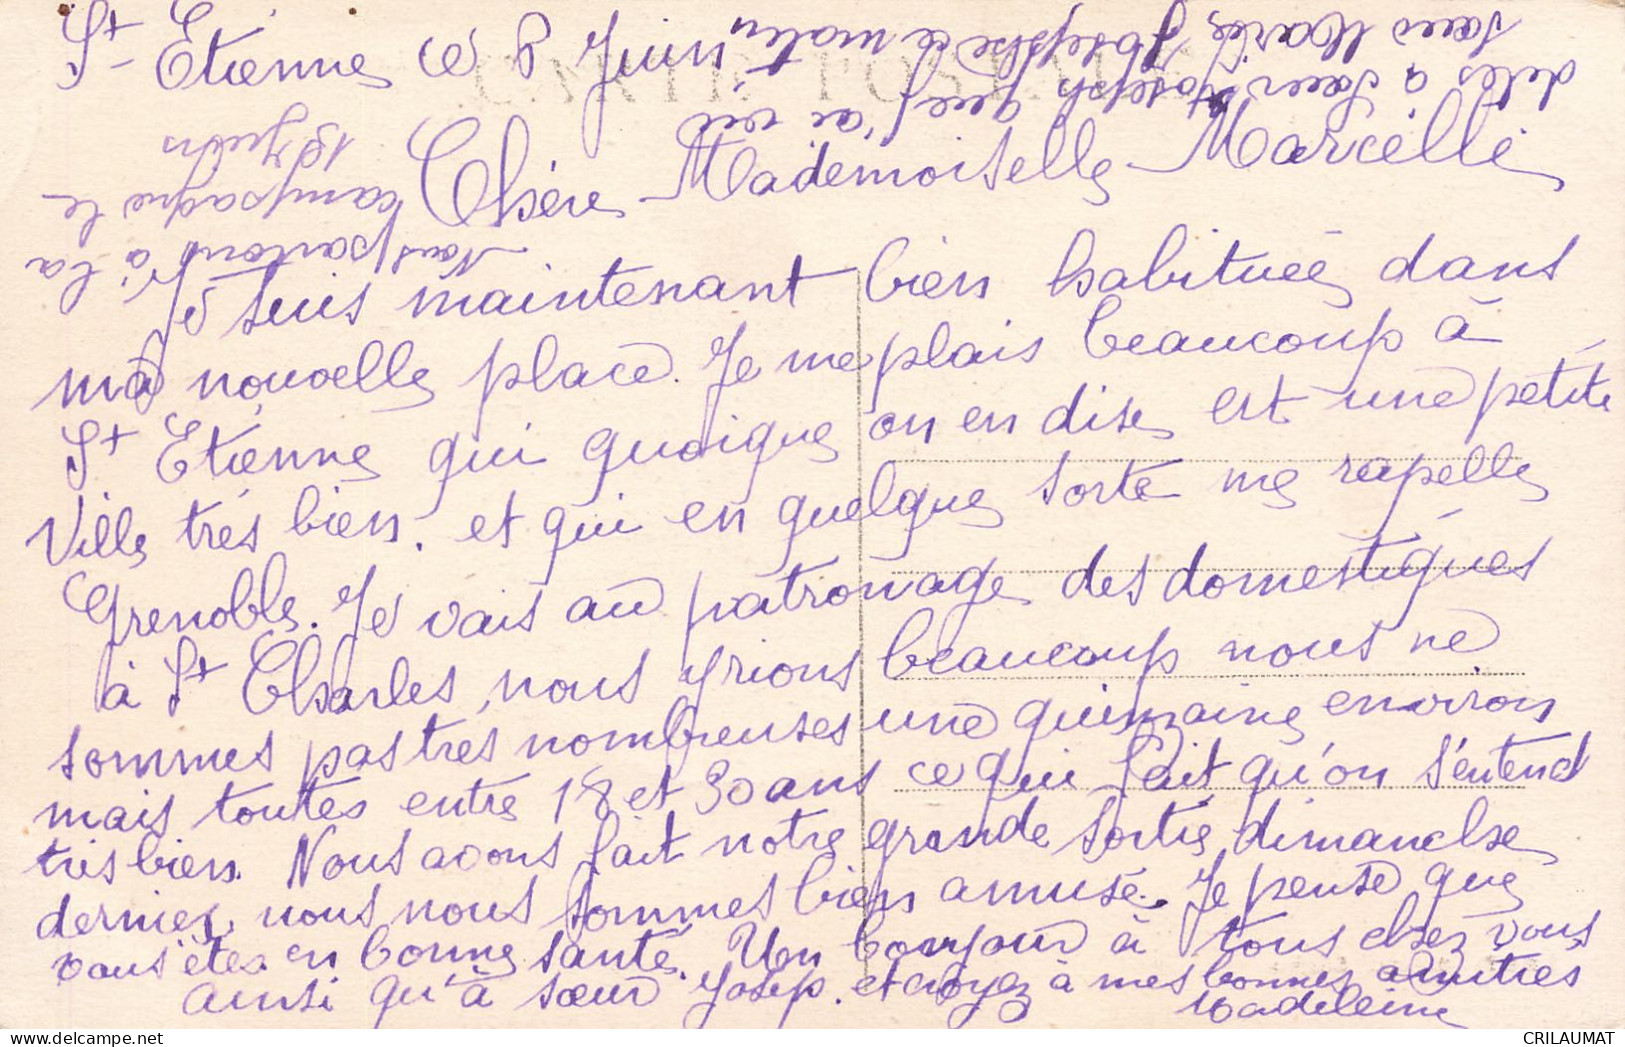 St Etienne ce 8 Juin
CARTE POSTALE
Chère Mademoiselle Marcelle
Je suis maintenant bien habituée dans
ma nouvelle place. Je me plais beaucoup à
St Etienne qui quoique on en dise est une petite
ville très bien. et qui en quelque sorte me rapelle
Grenoble. Je vais au patronage des domestiques
à St Charles, nous y rions beaucoup nous ne
sommes pas très nombreuses une quinzaine environ
mais toutes entre 18 et 30 ans ce qui fait qu'on s'entend
très bien. Nous avons fait notre grande sortie dimanche
dernier, nous nous sommes bien amusé. Je pense que
vous êtes en bonne santé. Un bonjour à tous chez vous
ainsi qu'à sœur Josep. et croyez à mes bonnes amitiés
Madeleine
Nous partons à la
campagne le
18 Juin
dites à Sœur Joseph que j'ai vu
Sœur Marie Josephe ce matin
CRILAUMAT